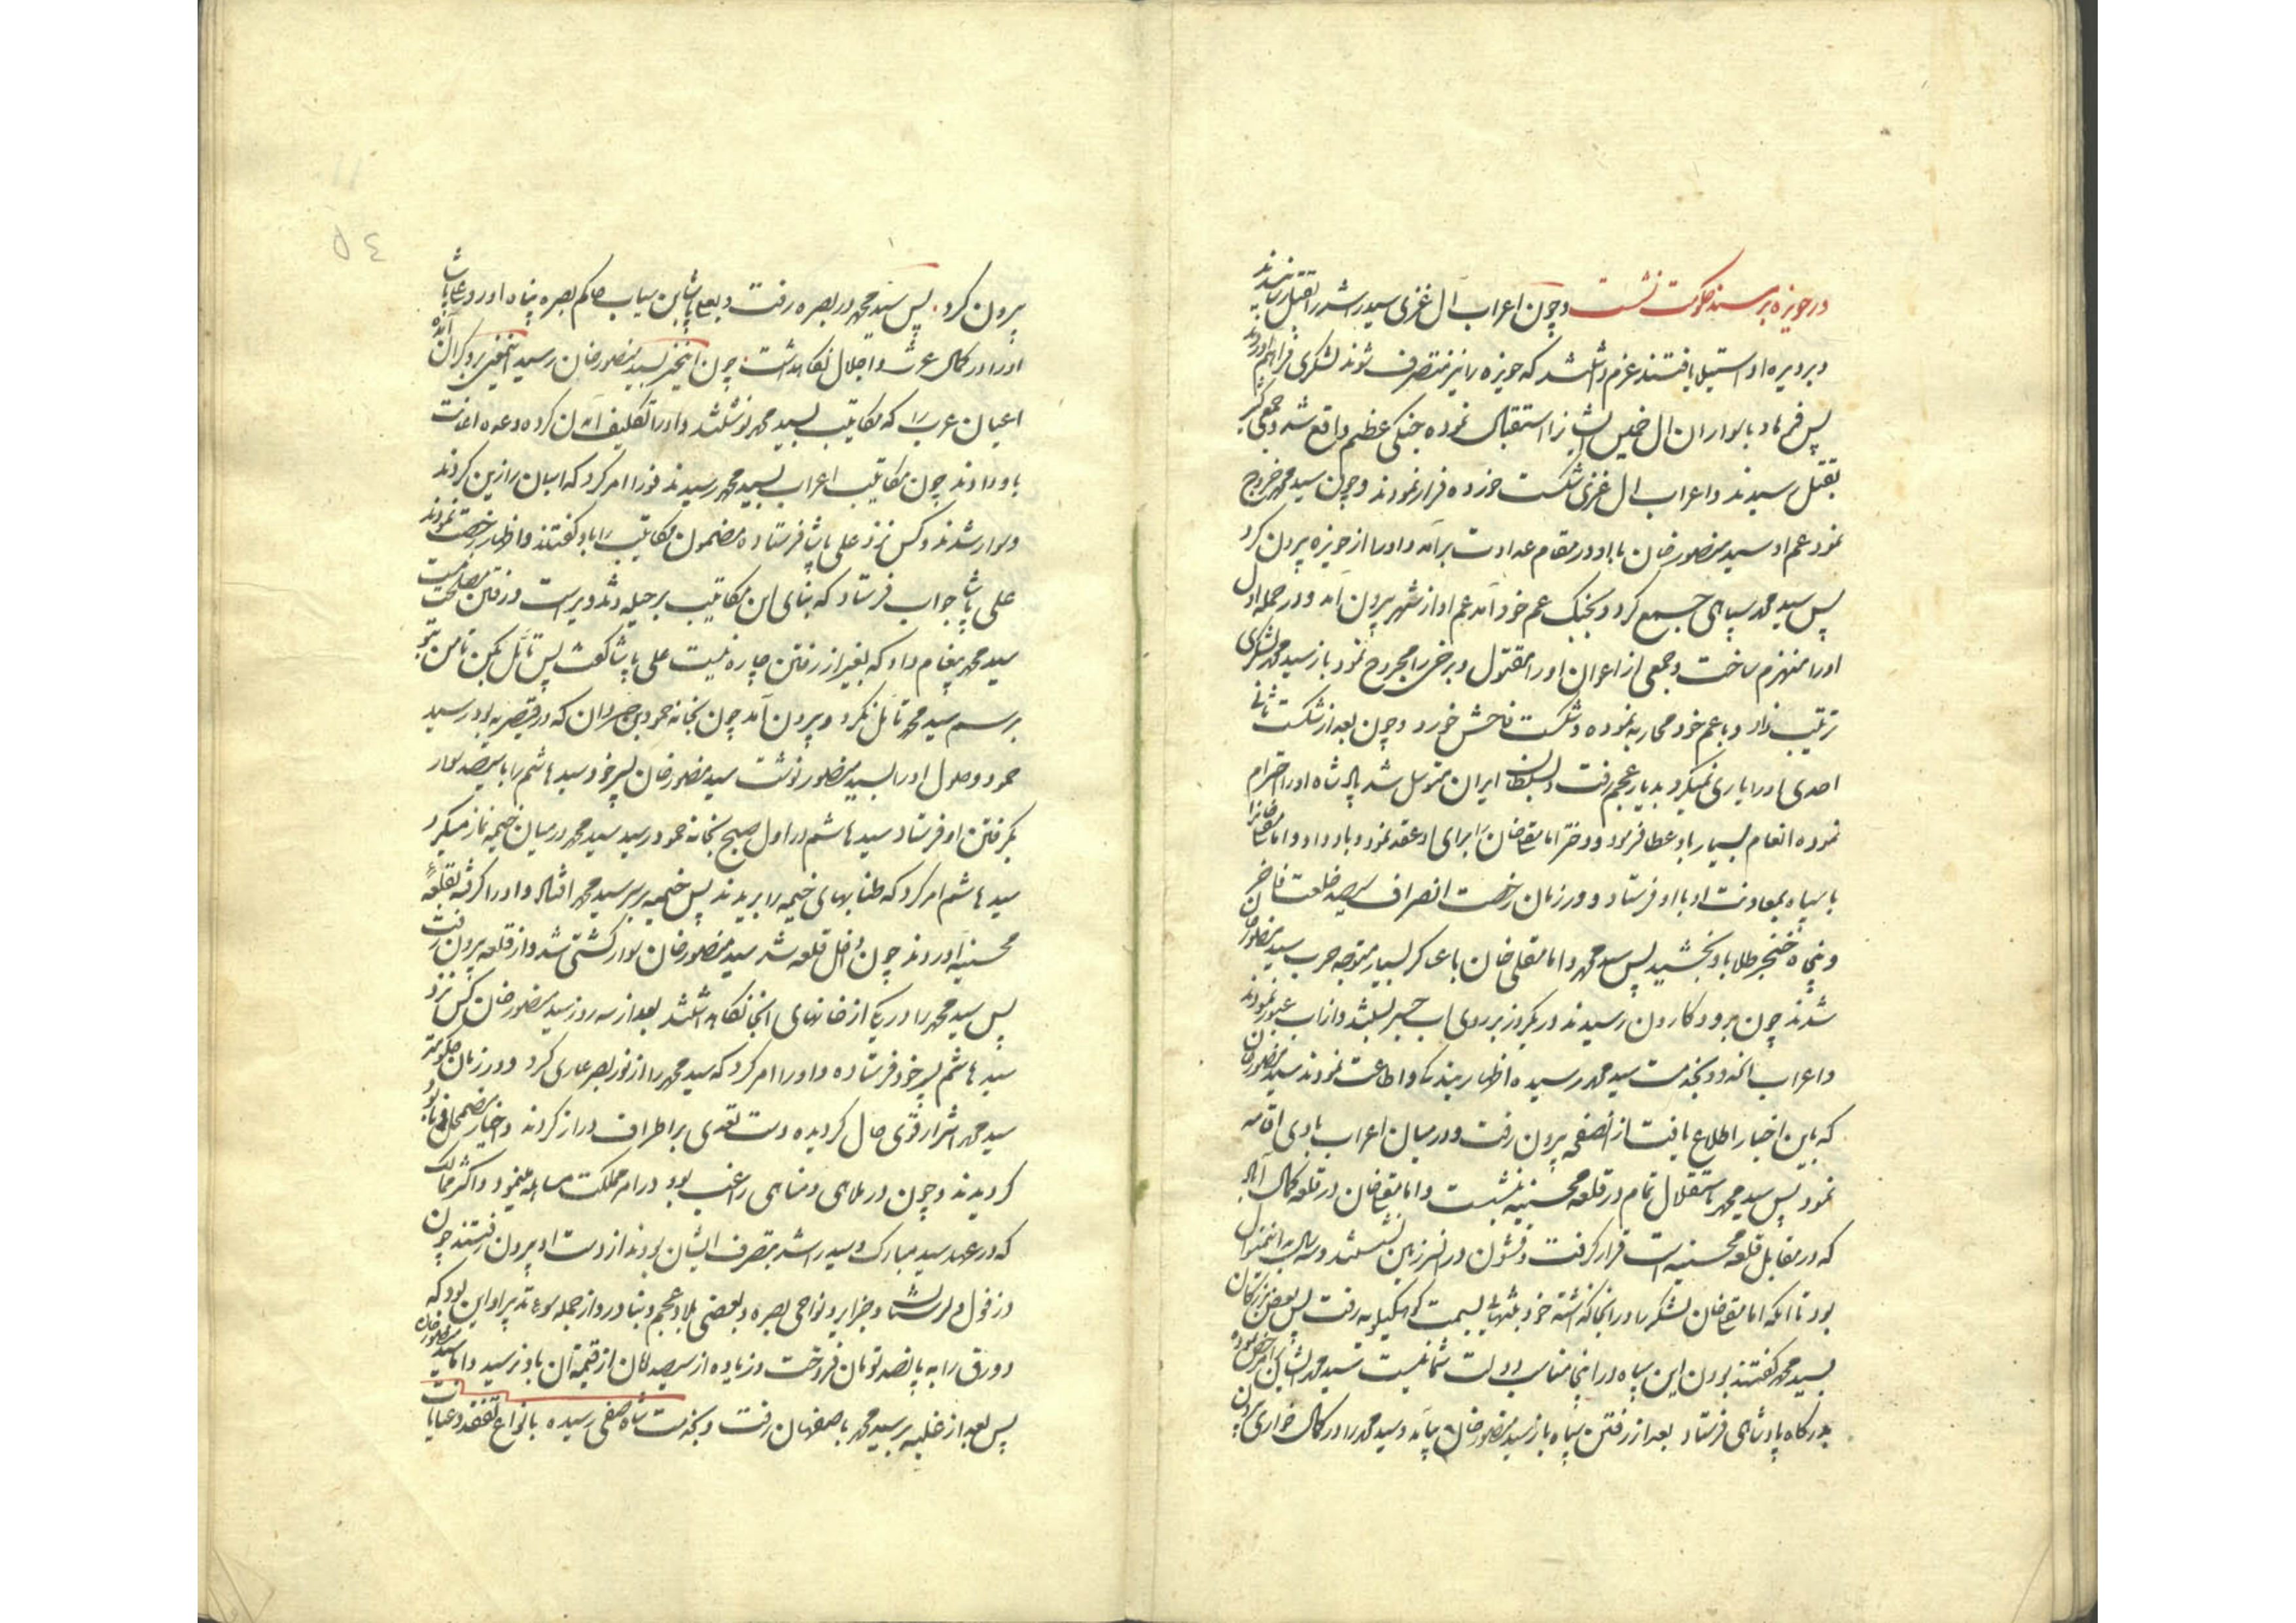 در حویزه بر مسند حکومت نشست و چون اعراب آل غزی سید راشد را بقتل رسانیدند
و بر دیره او استیلا یافتند عزم داشتند که حویزه را نیز متصرف شوند لشکری فراهم آوردند
پس فرهاد با سواران ال خمیس ایشانرا استقبال نموده جنکی عظیم واقع شد و جمعی کثیر
بقتل رسیدند و اعراب ال غزی شکست خورده فرار نمودند و چون سید محمد خروج
نمود عم او سید منصور خان با او در مقام عداوت برآمد و او را از حویزه بیرون کرد
پس سید محمد سپاهی جمع کرد و بجنک عم خود آمد عم او از شهر بیرون آمد و در حمله اول
او را منهزم ساخت و جمعی از اعوان او را مقتول و برخی را مجروح نمود باز سید محمد لشکری
ترتیب داد و با عم خود محاربه نموده و شکست فاحش خورد و چون بعد از شکست ثانی
احدی او را یاری نمیکرد بدیار عجم رفت و بسلطان ایران متوسل شد پادشاه او را احترام
نموده انعام بسیار باو عطا فرمود و دختر امامقلیخان را برای او عقد نمود و باو داد و امامقلیخانرا
با سپاه بمعاونت او با او فرستاد و در زمان رخصت انصراف سیصد خلعت فاخر
و پنجاه خنجر طلا باو بخشید پس سید محمد و امامقلی خان با عساکر بسیار متوجه حرب سید منصور خان
شدند چون برود کارون رسیدند در یکروز بر روی اب جسر بستند و از اب عبور نمودند
و اعراب انحدود بخدمت سید محمد رسیده اظهار بندکی و اطاعت نمودند سید منصور خان
که باین اخبار اطلاع یافت از انصفحه بیرون رفت و در میان اعراب بادی اقامه
نمود پس سید محمد باستقلال تمام در قلعه محسنیه بنشست و امامقلیخان در قلعه کمال آباد
که در مقابل قلعه محسنیه است قرار کرفت و قشون در انسرزمین نشستند و سالی به اینمنوال
بود تا آنکه امامقلیخان لشکر را در انجا کذاشته خود بتنهائی بسمت کوهکیلویه رفت پس بعض بزرکان
بسید محمد کفتند بودن این سپاه در اینجا مناسب دولت شما نیست سید محمد ایشان را مرخص نموده
بدرکاه پادشاهی فرستاد بعد از رفتن سپاه باز سید منصور خان بیامد و سید محمد را در کمال خواری بیرون
بیرون کرد پس سید محمد در بصره رفت و بعلی پاشا بن سیاب حاکم بصره پناه اورد و علی پاشا
او را در کمال عزت و اجلال نکاهداشت چون اینخبر بسید منصور خان رسید اینمعنی برو کران آمده
اعیان عرب را که مکاتیب بسید محمد نوشتند و او را تکلیف آمدن کرده وعده اعانت
باو دادند چون مکاتیب اعراب بسید محمد رسیدند فورا امر کرد که اسبان را زین کردند
و سوار شدند و کس نزد علی پاشا فرستاده مضمون مکاتیب را باو کفتند و اظهار رخصت نمودند
علی پاشا جواب فرستاد که بنای این مکاتیب بر حیله و تدویر است و رفتن مصلحت نیست
سید محمد پیغام داد که بغیر از رفتن چاره نیست علی پاشا کفت پس تأمل بکن تا من بتو
برسم سید محمد تأمل نکرد و بیرون آمد چون بخانه حمود بن حردان که در قیصریه بود رسید
حمود وصول او را بسید منصور نوشت سید منصور خان پسر خود سید هاشم را با سیصد سوار
بکرفتن او فرستاد سید هاشم در اول صبح بخانه حمود رسید سید محمد در میان خیمه نماز میکرد
سید هاشم امر کرد که طنابهای خیمه را بریدند پس خیمه بر سر سید محمد افتاد و او را کرفته بقلعهٔ
محسنیه آوردند چون داخل قلعه شد سید منصور خان سوار کشتی شد و از قلعه بیرون رفت
پس سید محمد را در یکی از خانهای انجا نکاهداشتند بعد از سه روز سید منصور خان کس نزد
سید هاشم پسر خود فرستاده و او را امر کرد که سید محمد را از نور بصر عاری کرد و در زمان حکومت
سید محمد اشرار قوی حال کردیده دست تعدی بر اطراف دراز کردند و اخیار مضمحل و نابود
کردیدند و چون در ملاهی و مناهی راغب بود در امر مملکت مساهله مینمود و اکثر ممالک
که در عهد سید مبارک و سید راشد بتصرف ایشان بودند از دست او بیرون رفتند چون
دزفول و لرستان و جزایر و نواحی بصره و بعضی بلاد عجم و بنادر و از جمله سوء تدبیر او این بود که
دورق را به پانصد تومان فروخت و زیاده از سیصد تومان از قیمة آن باو نرسید و اما سید منصور خان
پس بعد از غلبه بر سید محمد باصفهان رفت و بخدمت شاه صفی رسیده بانواع تفقد و عنایات